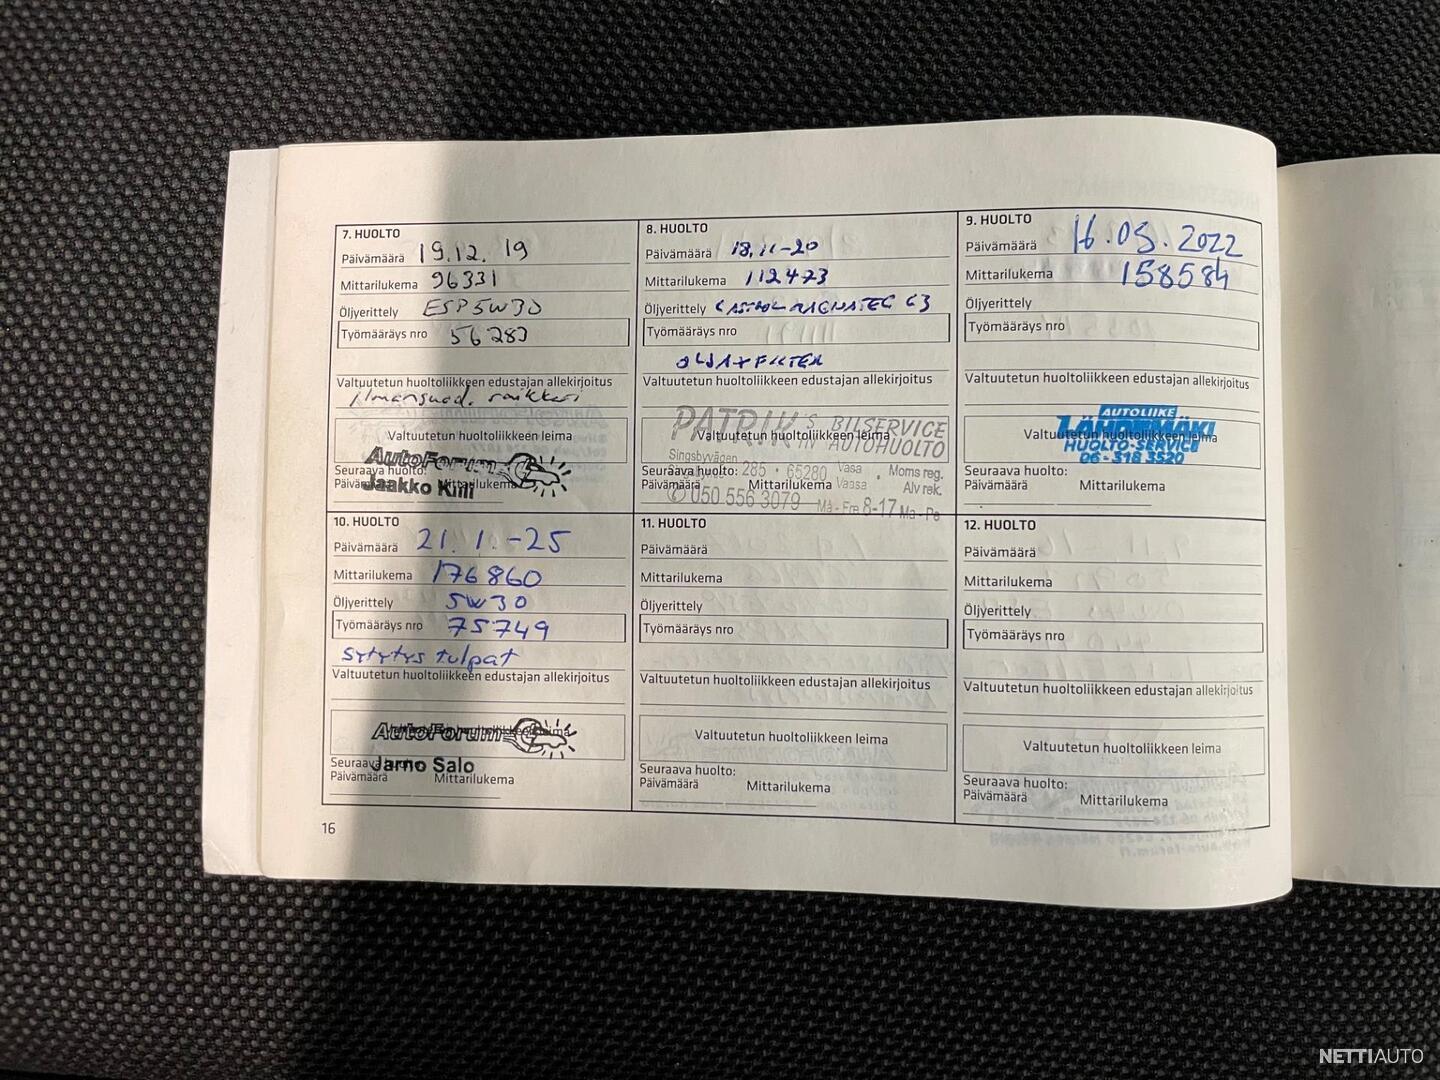 7. HUOLTO
Päivämäärä 19.12.19
Mittarilukema 96331
Öljyerittely ESP 5W30
Työmääräys nro 56283
Valtuutetun huoltoliikkeen edustajan allekirjoitus
raikkeri
Valtuutetun huoltoliikkeen leima
AutoForum
Seuraava huolto:
Päivämäärä Mittarilukema
Jaakko Kiili
8. HUOLTO
Päivämäärä 18.11-20
Mittarilukema 112473
Öljyerittely CASTROL MAGNATEC C3
Työmääräys nro
OLJA + FILTER
Valtuutetun huoltoliikkeen edustajan allekirjoitus
PATRIK'S BILSERVICE
AUTOHUOLTO
Valtuutetun huoltoliikkeen leima
Singsbyvägen
285 • 65280 Vasa Vaasa • Moms reg. Alv rek.
Seuraava huolto:
Päivämäärä Mittarilukema
050 556 3079 Må - Fre 8-17 Ma - Pe
9. HUOLTO
Päivämäärä 16.05.2022
Mittarilukema 158584
Öljyerittely
Työmääräys nro
Valtuutetun huoltoliikkeen edustajan allekirjoitus
AUTOLIIKE
LÄHDEMÄKI
Valtuutetun huoltoliikkeen leima
HUOLTO-SERVICE
06 - 318 3520
Seuraava huolto:
Päivämäärä Mittarilukema
10. HUOLTO
Päivämäärä 21.1.-25
Mittarilukema 176860
Öljyerittely 5W30
Työmääräys nro 75749
sytytys tulpat
Valtuutetun huoltoliikkeen edustajan allekirjoitus
AutoForum
Valtuutetun huoltoliikkeen leima
Jarno Salo
Seuraava huolto:
Päivämäärä Mittarilukema
11. HUOLTO
Päivämäärä
Mittarilukema
Öljyerittely
Työmääräys nro
Valtuutetun huoltoliikkeen edustajan allekirjoitus
Valtuutetun huoltoliikkeen leima
Seuraava huolto:
Päivämäärä Mittarilukema
12. HUOLTO
Päivämäärä
Mittarilukema
Öljyerittely
Työmääräys nro
Valtuutetun huoltoliikkeen edustajan allekirjoitus
Valtuutetun huoltoliikkeen leima
Seuraava huolto:
Päivämäärä Mittarilukema
16
NETTIAUTO